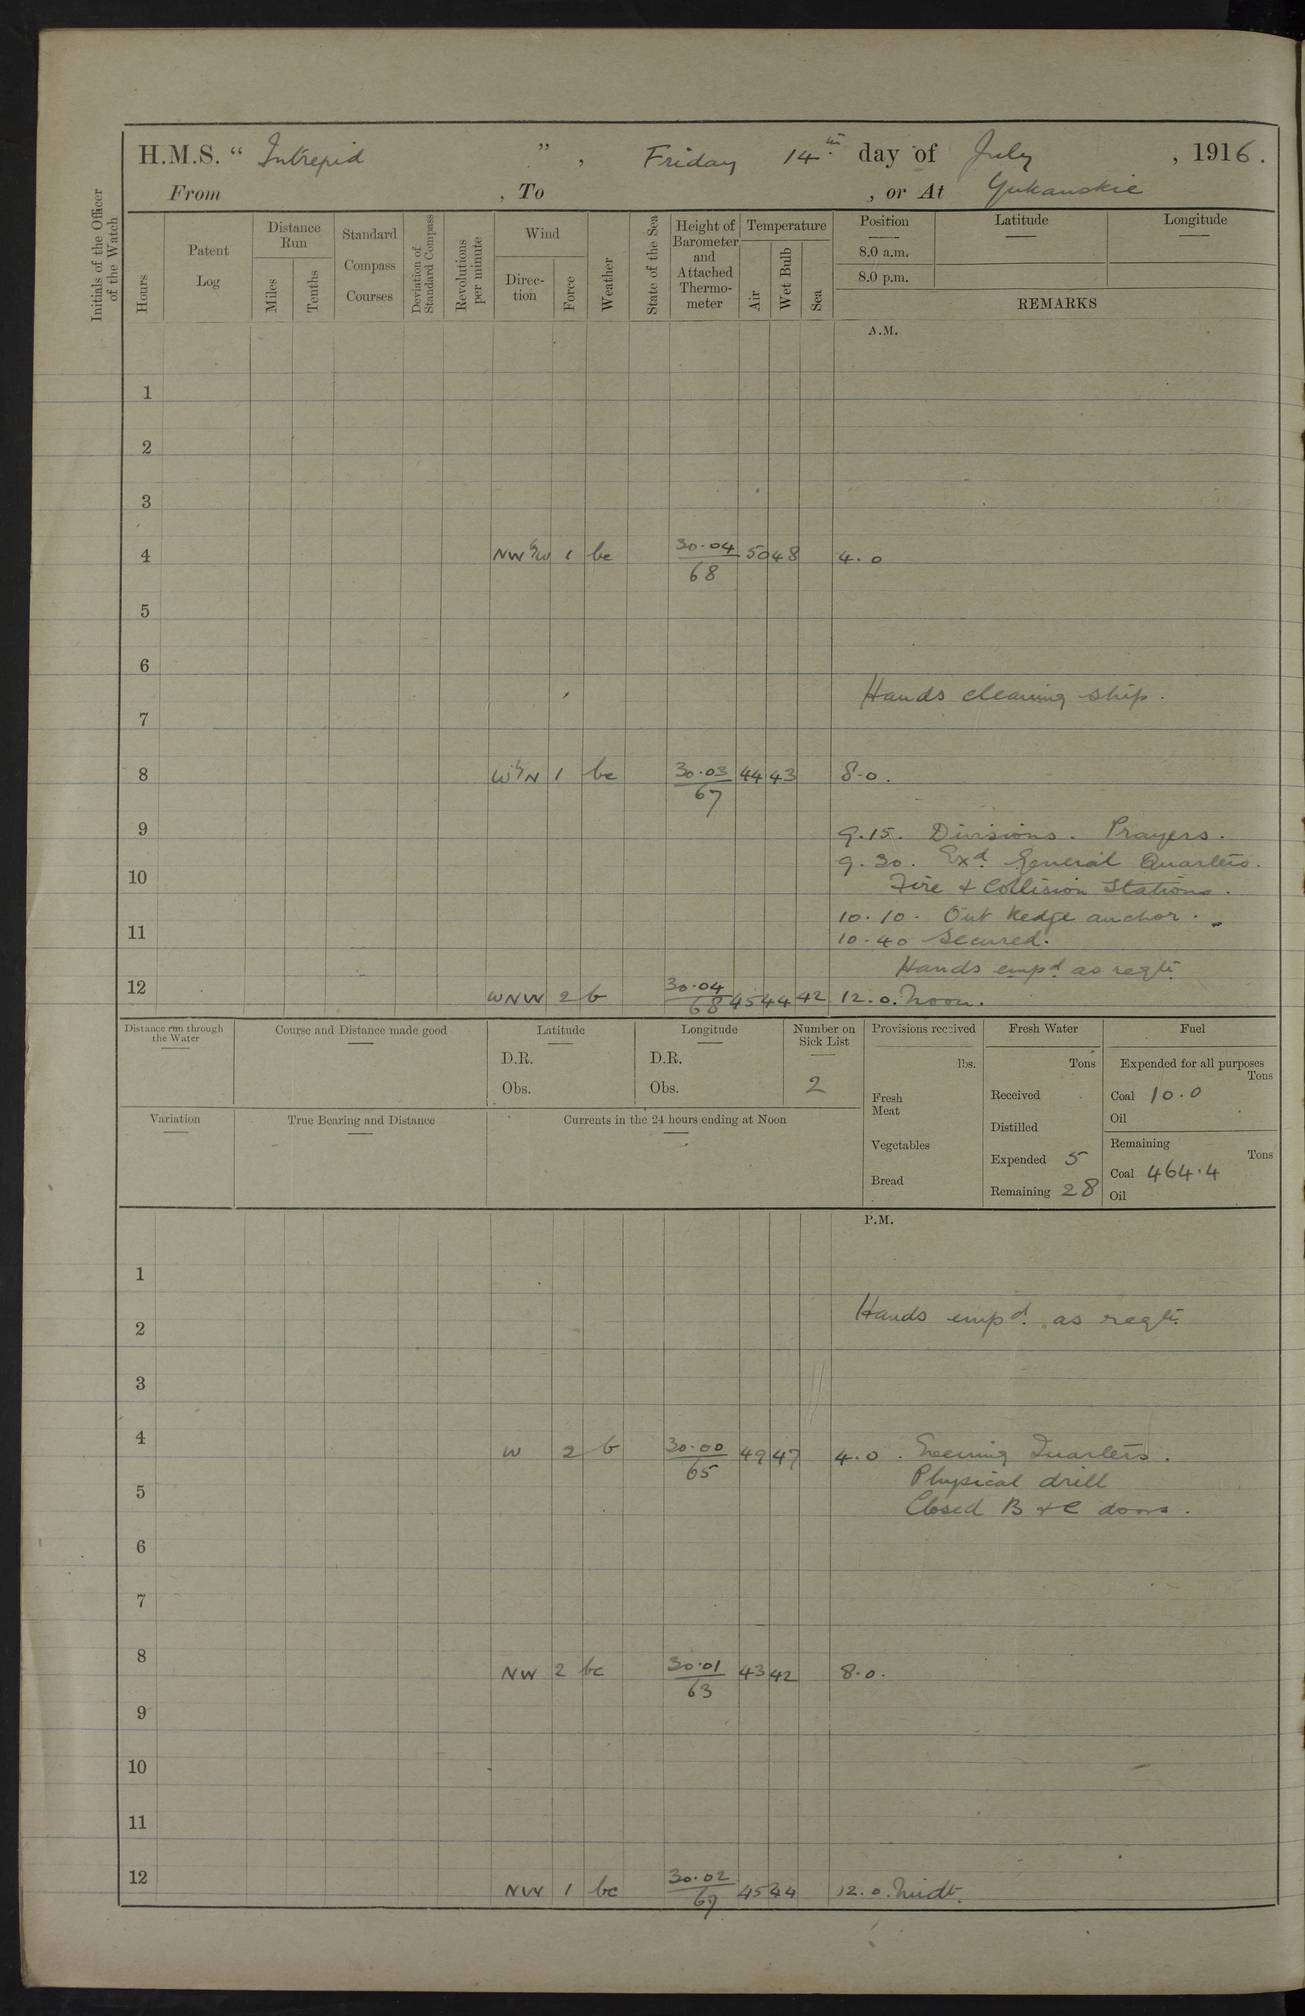 H.M.S. “ Intrepid ” , Friday 14th day of July , 1916.
From , To , or At Yukanskie
Initials of the Officer of the Watch
Hours
Patent Log
Distance Run
Miles
Tenths
Standard Compass Courses
Deviation of Standard Compass
Revolutions per minute
Wind
Direc-tion
Force
Weather
State of the Sea
Height of Barometer and Attached Thermo-meter
Temperature
Air
Wet Bulb
Sea
Position
8.0 a.m.
8.0 p.m.
Latitude
Longitude
REMARKS
A.M.
1
2
3
4 NW by W 1 bc 30.04 50 48 4.0
68
5
6
Hands cleaning ship.
7
8 W by N 1 bc 30.03 44 43 8.0.
67
9 9.15. Divisions. Prayers.
9.30. Exd. General Quarters.
10 Fire & Collision Stations.
10.10. Out Kedge anchor.
11 10.40 Secured.
Hands empd. as reqte.
12 WNW 2 b 30.04 45 44 42 12.0. Noon.
68
Distance run through the Water
Course and Distance made good
Latitude
D.R.
Obs.
Longitude
D.R.
Obs.
Number on Sick List
2
Provisions received
lbs.
Fresh Meat
Vegetables
Bread
Fresh Water
Tons
Received
Distilled
Expended 5
Remaining 28
Fuel
Expended for all purposes
Tons
Coal 10.0
Oil
Remaining
Tons
Coal 464.4
Oil
Variation
True Bearing and Distance
Currents in the 24 hours ending at Noon
P.M.
1
2 Hands empd. as reqte.
3
4 W 2 b 30.00 49 47 4.0. Evening Quarters.
65
Physical drill
5 Closed B & C doors.
6
7
8 NW 2 bc 30.01 43 42 8.0.
63
9
10
11
12 NW 1 bc 30.02 45 44 12.0. Midt.
67